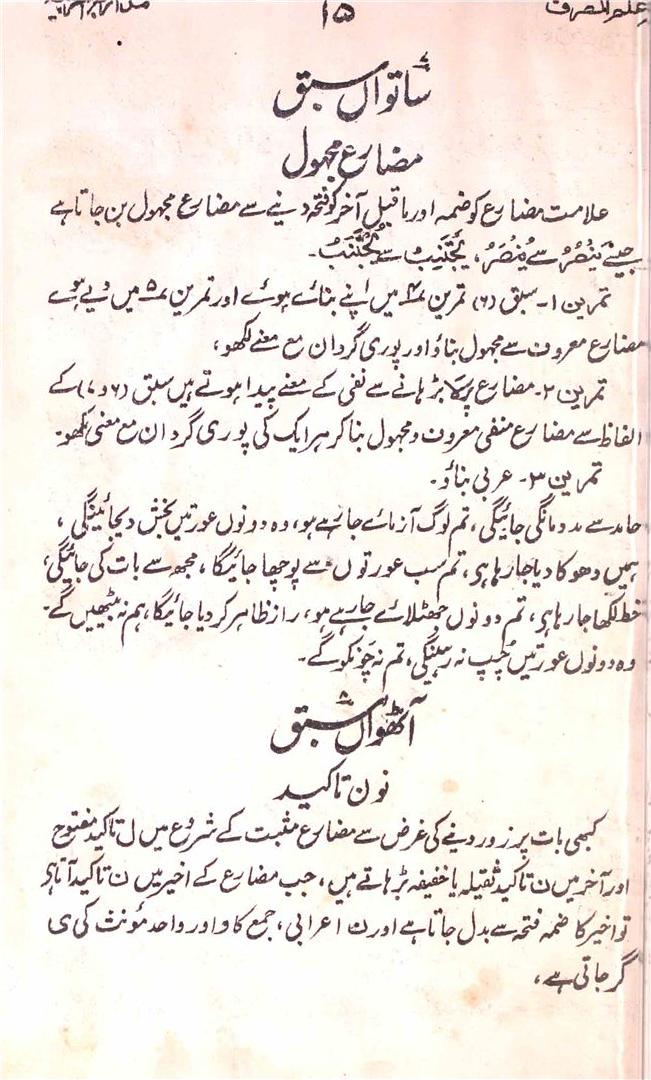 علم الصرف ۱۵
ساتواں سبق ۷
مضارع مجہول
علامت مضارع کو ضمہ اور ماقبل آخر کو فتحہ دینے سے مضارع مجہول بن جاتا ہے
جیسے یَنْصُرُ سے یُنْصَرُ، یَجْتَنِبُ سے یُجْتَنَبُ۔
تمرین ۱۔ سبق (۶) تمرین ۴ میں اپنے بنائے ہوئے اور تمرین ۵ میں دیے ہوے
مضارع معروف سے مجہول بناؤ اور پوری گردان مع معنے لکھو،
تمرین ۲۔ مضارع پر لا بڑہانے سے نفی کے معنے پیدا ہوتے ہیں سبق (۶ و ۷) کے
الفاظ سے مضارع منفی معروف و مجہول بنا کر ہر ایک کی پوری گردان مع معنی لکھو۔
تمرین ۳۔ عربی بناؤ۔
حامد سے مدد مانگی جائیگی، تم لوگ آزمائے جارہے ہو، وہ دونوں عورتیں بخش دیجائینگی،
ہمیں دھوکا دیا جا رہا ہی، تم سب عورتوں سے پوچھا جائیگا، مجھ سے بات کی جائیگی،
خط لکھا جا رہا ہی، تم دونوں جھٹلائے جارہے ہو، راز ظاہر کر دیا جائیگا، ہم نہ بیٹھیں گے۔
وہ دونوں عورتیں چپ نہ رہینگی، تم نہ چونکو گے۔
آٹھواں سبق ۸
نون تاکید
کبھی بات پر زور دینے کی غرض سے مضارع مثبت کے شروع میں ل تاکید مفتوح
اور آخر میں ن تاکید ثقیلہ یا خفیفہ بڑہاتے ہیں، جب مضارع کے اخیر میں ن تاکید آتا ہی
تو اخیر کا ضمہ فتحہ سے بدل جاتا ہے اور ن اعرابی، جمع کا و اور واحد مؤنث کی ی
گر جاتی ہے،